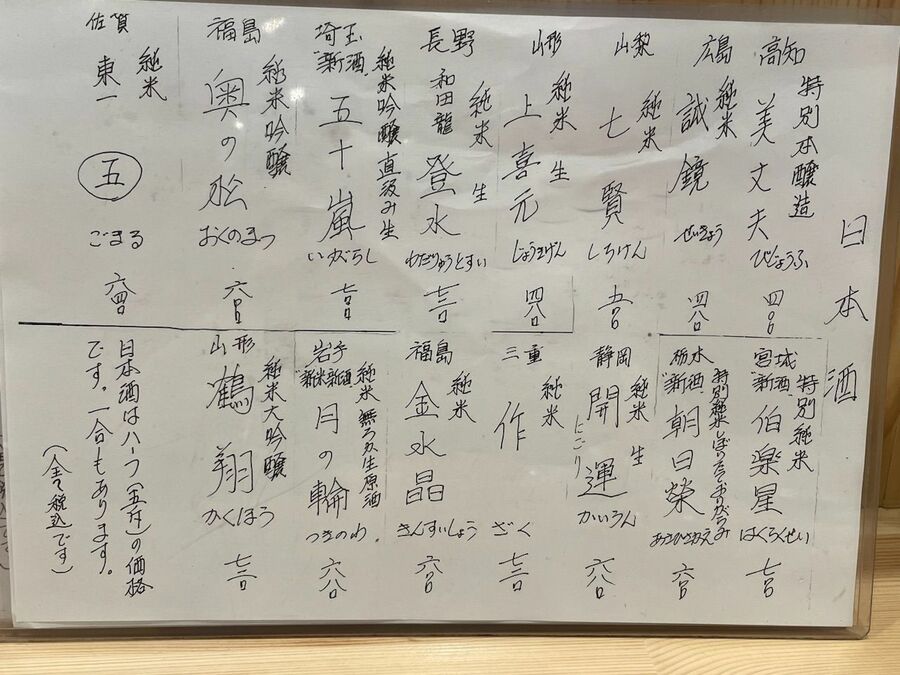 日本酒
高知
特別本醸造
美丈夫
びじょうふ
四〇〇
広島
純米
誠鏡
せいきょう
四八〇
山梨
純米
七賢
しちけん
五〇〇
山形
純米 生
上喜元
じょうきげん
四八〇
長野
純米 生
和田龍登水
わだりゅうとすい
埼玉
"新酒"
純米吟醸 直汲み生
五十嵐
いがらし
七〇〇
福島
純米吟醸
奥の松
おくのまつ
六〇〇
佐賀
純米
東一
五
ごまる
六四〇
宮城
"新酒"
特別純米
伯楽星
はくらくせい
七〇〇
栃木
"新酒"
特別純米しぼりたておりがらみ
朝日榮
あさひさかえ
六〇〇
静岡
純米 生
開運
にごり
かいうん
六八〇
三重
純米
作
ざく
福島
純米
金水晶
きんすいしょう
六〇〇
岩手
"新米新酒"
純米 無ろ過生原酒
月の輪
つきのわ
六八〇
山形
純米大吟醸
鶴翔
かくほう
日本酒はハーフ(五勺)の価格
です。一合もあります。
(全て税込です)